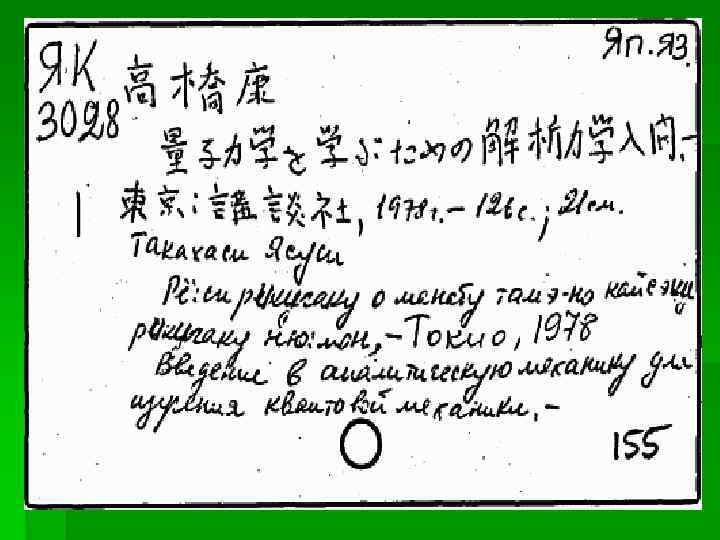 ЯК Яп.яз.
3028 高橋康
量子力学を学ぶための解析力学入門.-
1 東京: 講談社, 1978г.-126с.; 21см.
Такахаси Ясуси
Рё:си рикигаку о манабу тамэ-но кайсэки
рикигаку ню:мон, - Токио, 1978
Введение в аналитическую механику для
изучения квантовой механики. -
155